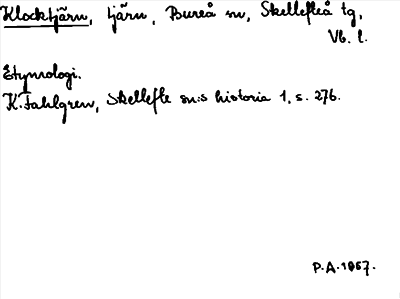 Klocktjärn, tjärn, Bureå sn, Skellefteå tg,
Vb. l.
Etymologi.
K. Fahlgren, Skellefte sn:s historia 1, s. 276.
P.A. 1967.